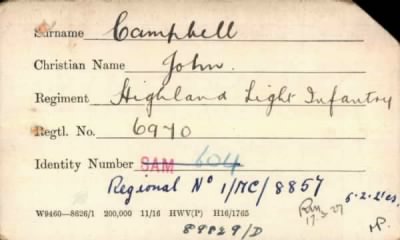 Surname Campbell
Christian Name John.
Regiment Highland Light Infantry
Regtl. No. 6970
Identity Number SAM 604
Regional No 1/MC/8857
W9460—8626/1 200,000 11/16 HWV(P) H16/1765
89829/D